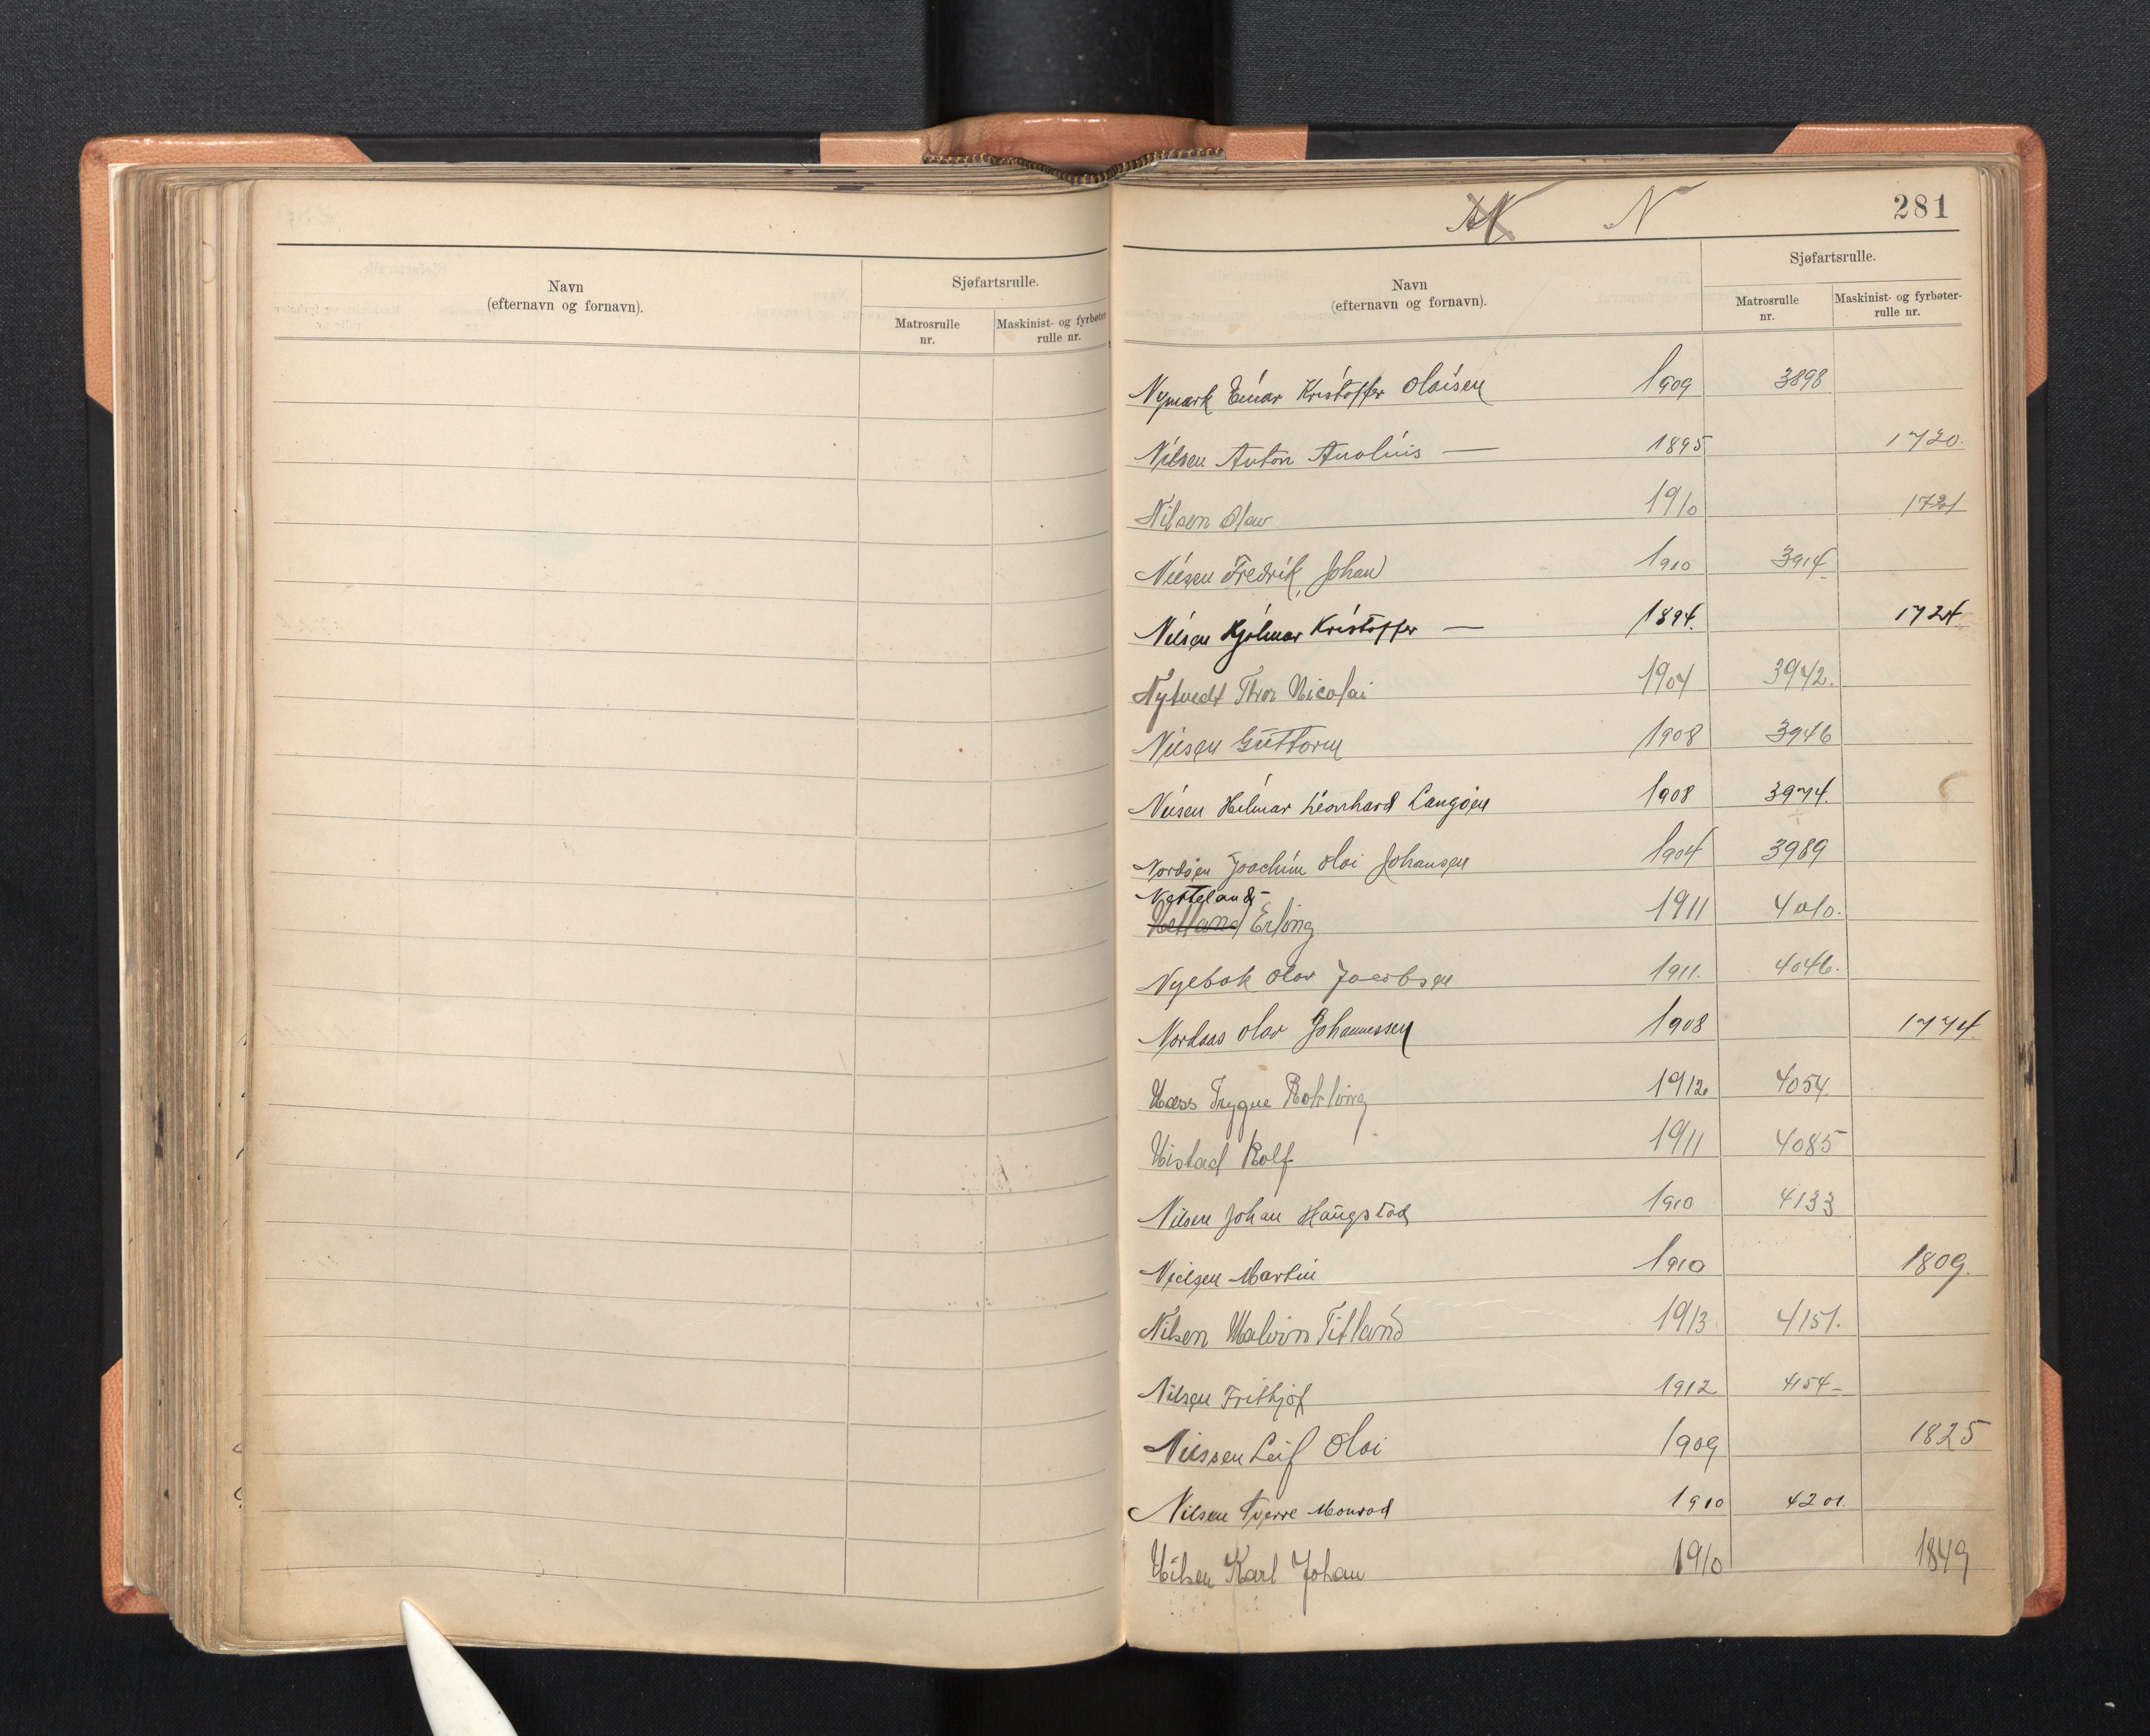 Navn
(efternavn og fornavn).
Sjøfartsrulle.
Matrosrulle
nr.
Maskinist- og fyrbøter-
rulle nr.
N
281
Navn
(efternavn og fornavn).
Sjøfartsrulle.
Matrosrulle
nr.
Maskinist- og fyrbøter-
rulle nr.
Nymark Einar Kristoffer Olaisen 1909 3898
Nilsen Anton Anolius — 1895 1720.
Nilsen Olav 1910 1721
Nilsen Fredrik Johan 1910 3914.
Nilsen Hjalmar Kristoffer — 1894. 1724.
Nytvedt Thor Nicolai 1904 3942.
Nilsen Guttorm 1908 3946
Nilsen Hilmar Leonhard Langøen 1908 3974.
Nordøen Joachim Olai Johansen 1904 3989
Nesteland
Hetland Erling 1911 4010.
Nyebak Olav Jacobsen 1911. 4046.
Nordaas Olav Johannessen 1908 1774.
Næss Trygve 1912 4054.
Nistad Rolf 1911 4085
Nilsen Johan Haugstad 1910 4133
Nielsen Martin 1910 1809.
Nilsen Malvin Titland 1913 4151.
Nilsen Frithjof 1912 4154-
Nilssen Leif Olai 1909 1825
Nilsen Sverre Monrad 1910 4201.
Nilsen Karl Johan 1910 1849